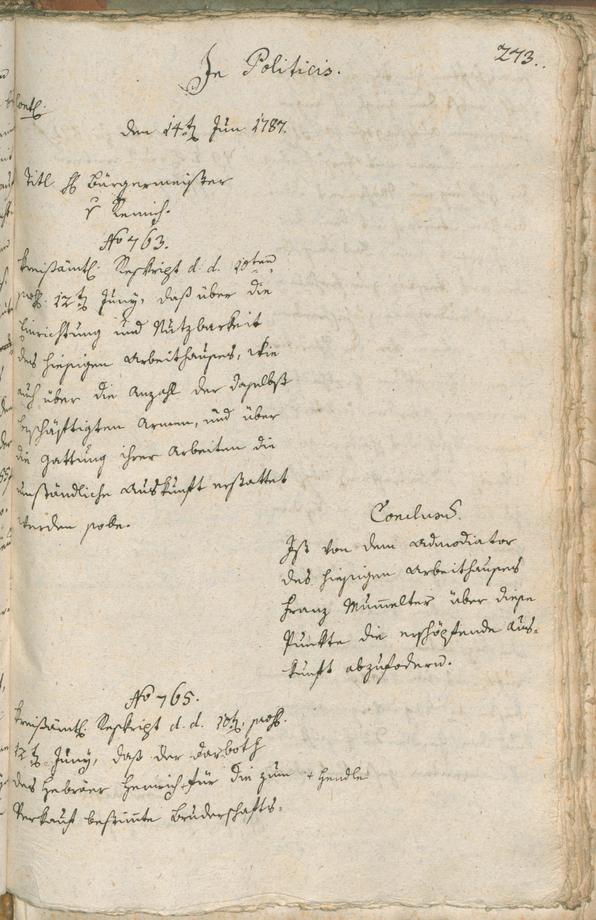 273.
In Politicis.
den 14t Jun 1787.
Titl. H Bürgermeister
v Remich.
No 763.
Kreisämtl. Reskript d. d. 10ten
pros. 12t Juny, daß über die
Einrichtung und Nutzbarkeit
des hiesigen Arbeithauses, wie
auch über die Anzahl der daselbst
beschäftigten Armen, und über
die Gattung ihrer Arbeiten die
umständliche Auskunft erstattet
werden solle.
Conclusum.
Ist von dem Admodiator
des hiesigen Arbeithauses
Franz Mumelter über diese
Punkte die erschöpfende Aus-
kunft abzufodern.
No 765.
Kreisämtl. Reskript d. d. 10t, pros.
12t Juny, daß der Darboth
des Hebräer Henrich für die zum + Hendle
Verkauf bestimte Bruderschafts-